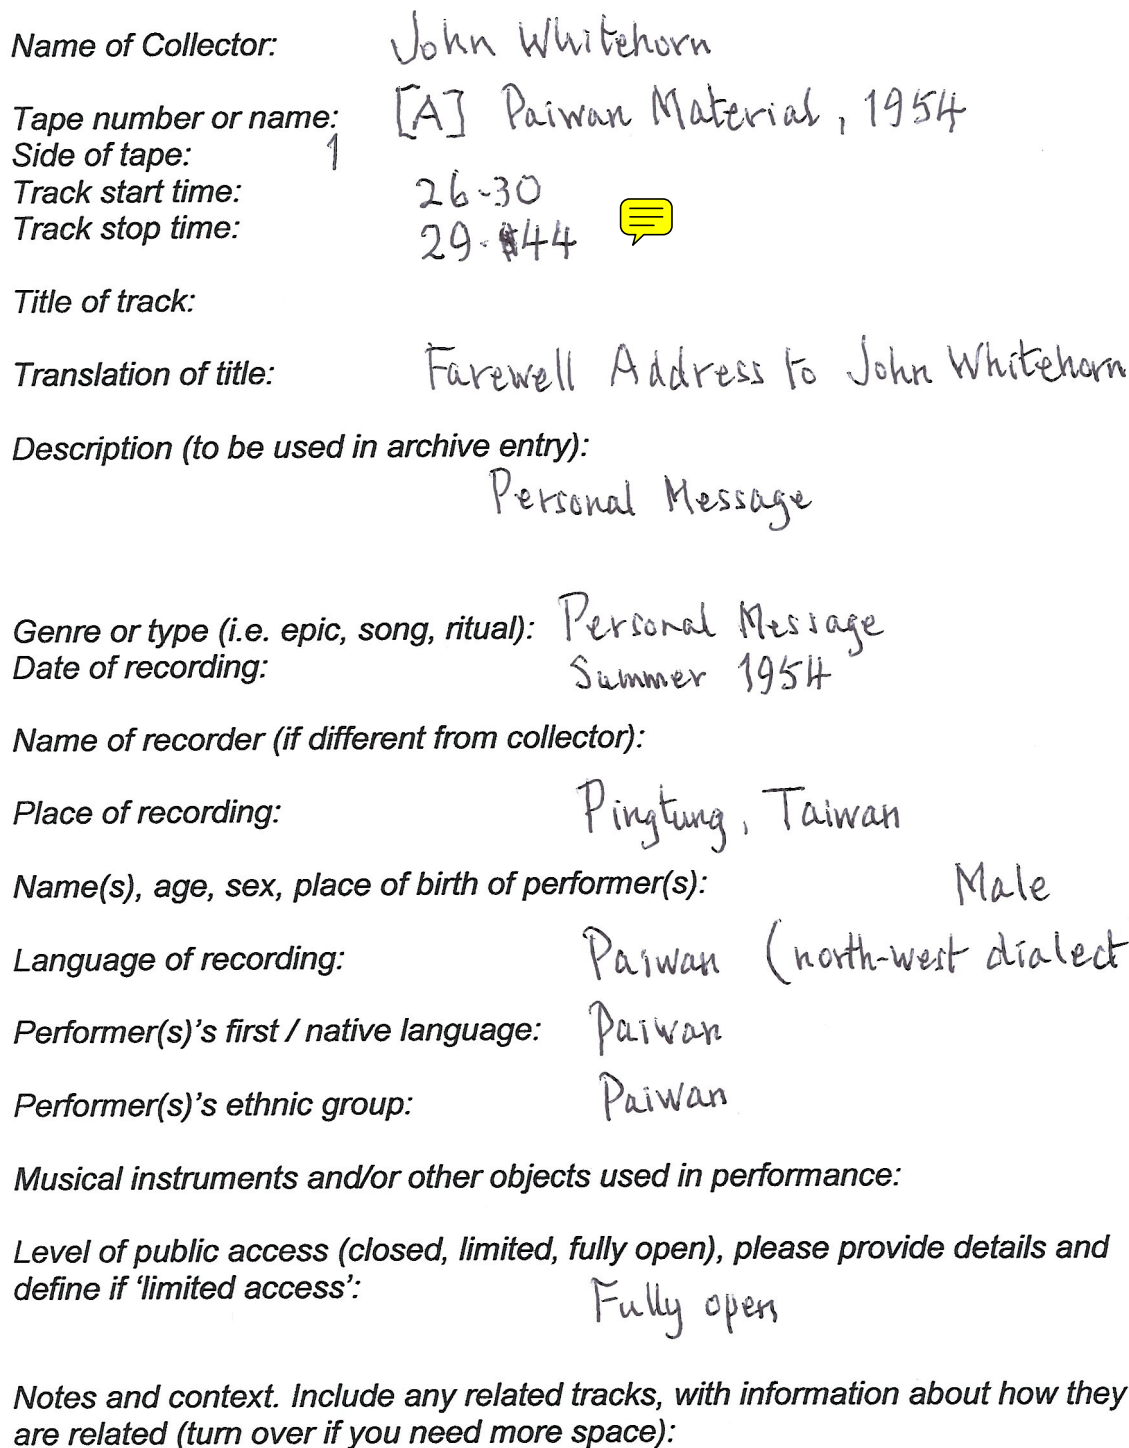 Name of Collector: John Whitehorn
Tape number or name: [A] Paiwan Material, 1954
Side of tape: 1
Track start time: 26-30
Track stop time: 29-44
Title of track:
Translation of title: Farewell Address to John Whitehorn
Description (to be used in archive entry):
Personal Message
Genre or type (i.e. epic, song, ritual): Personal Message
Date of recording: Summer 1954
Name of recorder (if different from collector):
Place of recording: Pingtung, Taiwan
Name(s), age, sex, place of birth of performer(s): Male
Language of recording: Paiwan (north-west dialect
Performer(s)'s first / native language: Paiwan
Performer(s)'s ethnic group: Paiwan
Musical instruments and/or other objects used in performance:
Level of public access (closed, limited, fully open), please provide details and
define if 'limited access': Fully open
Notes and context. Include any related tracks, with information about how they
are related (turn over if you need more space):